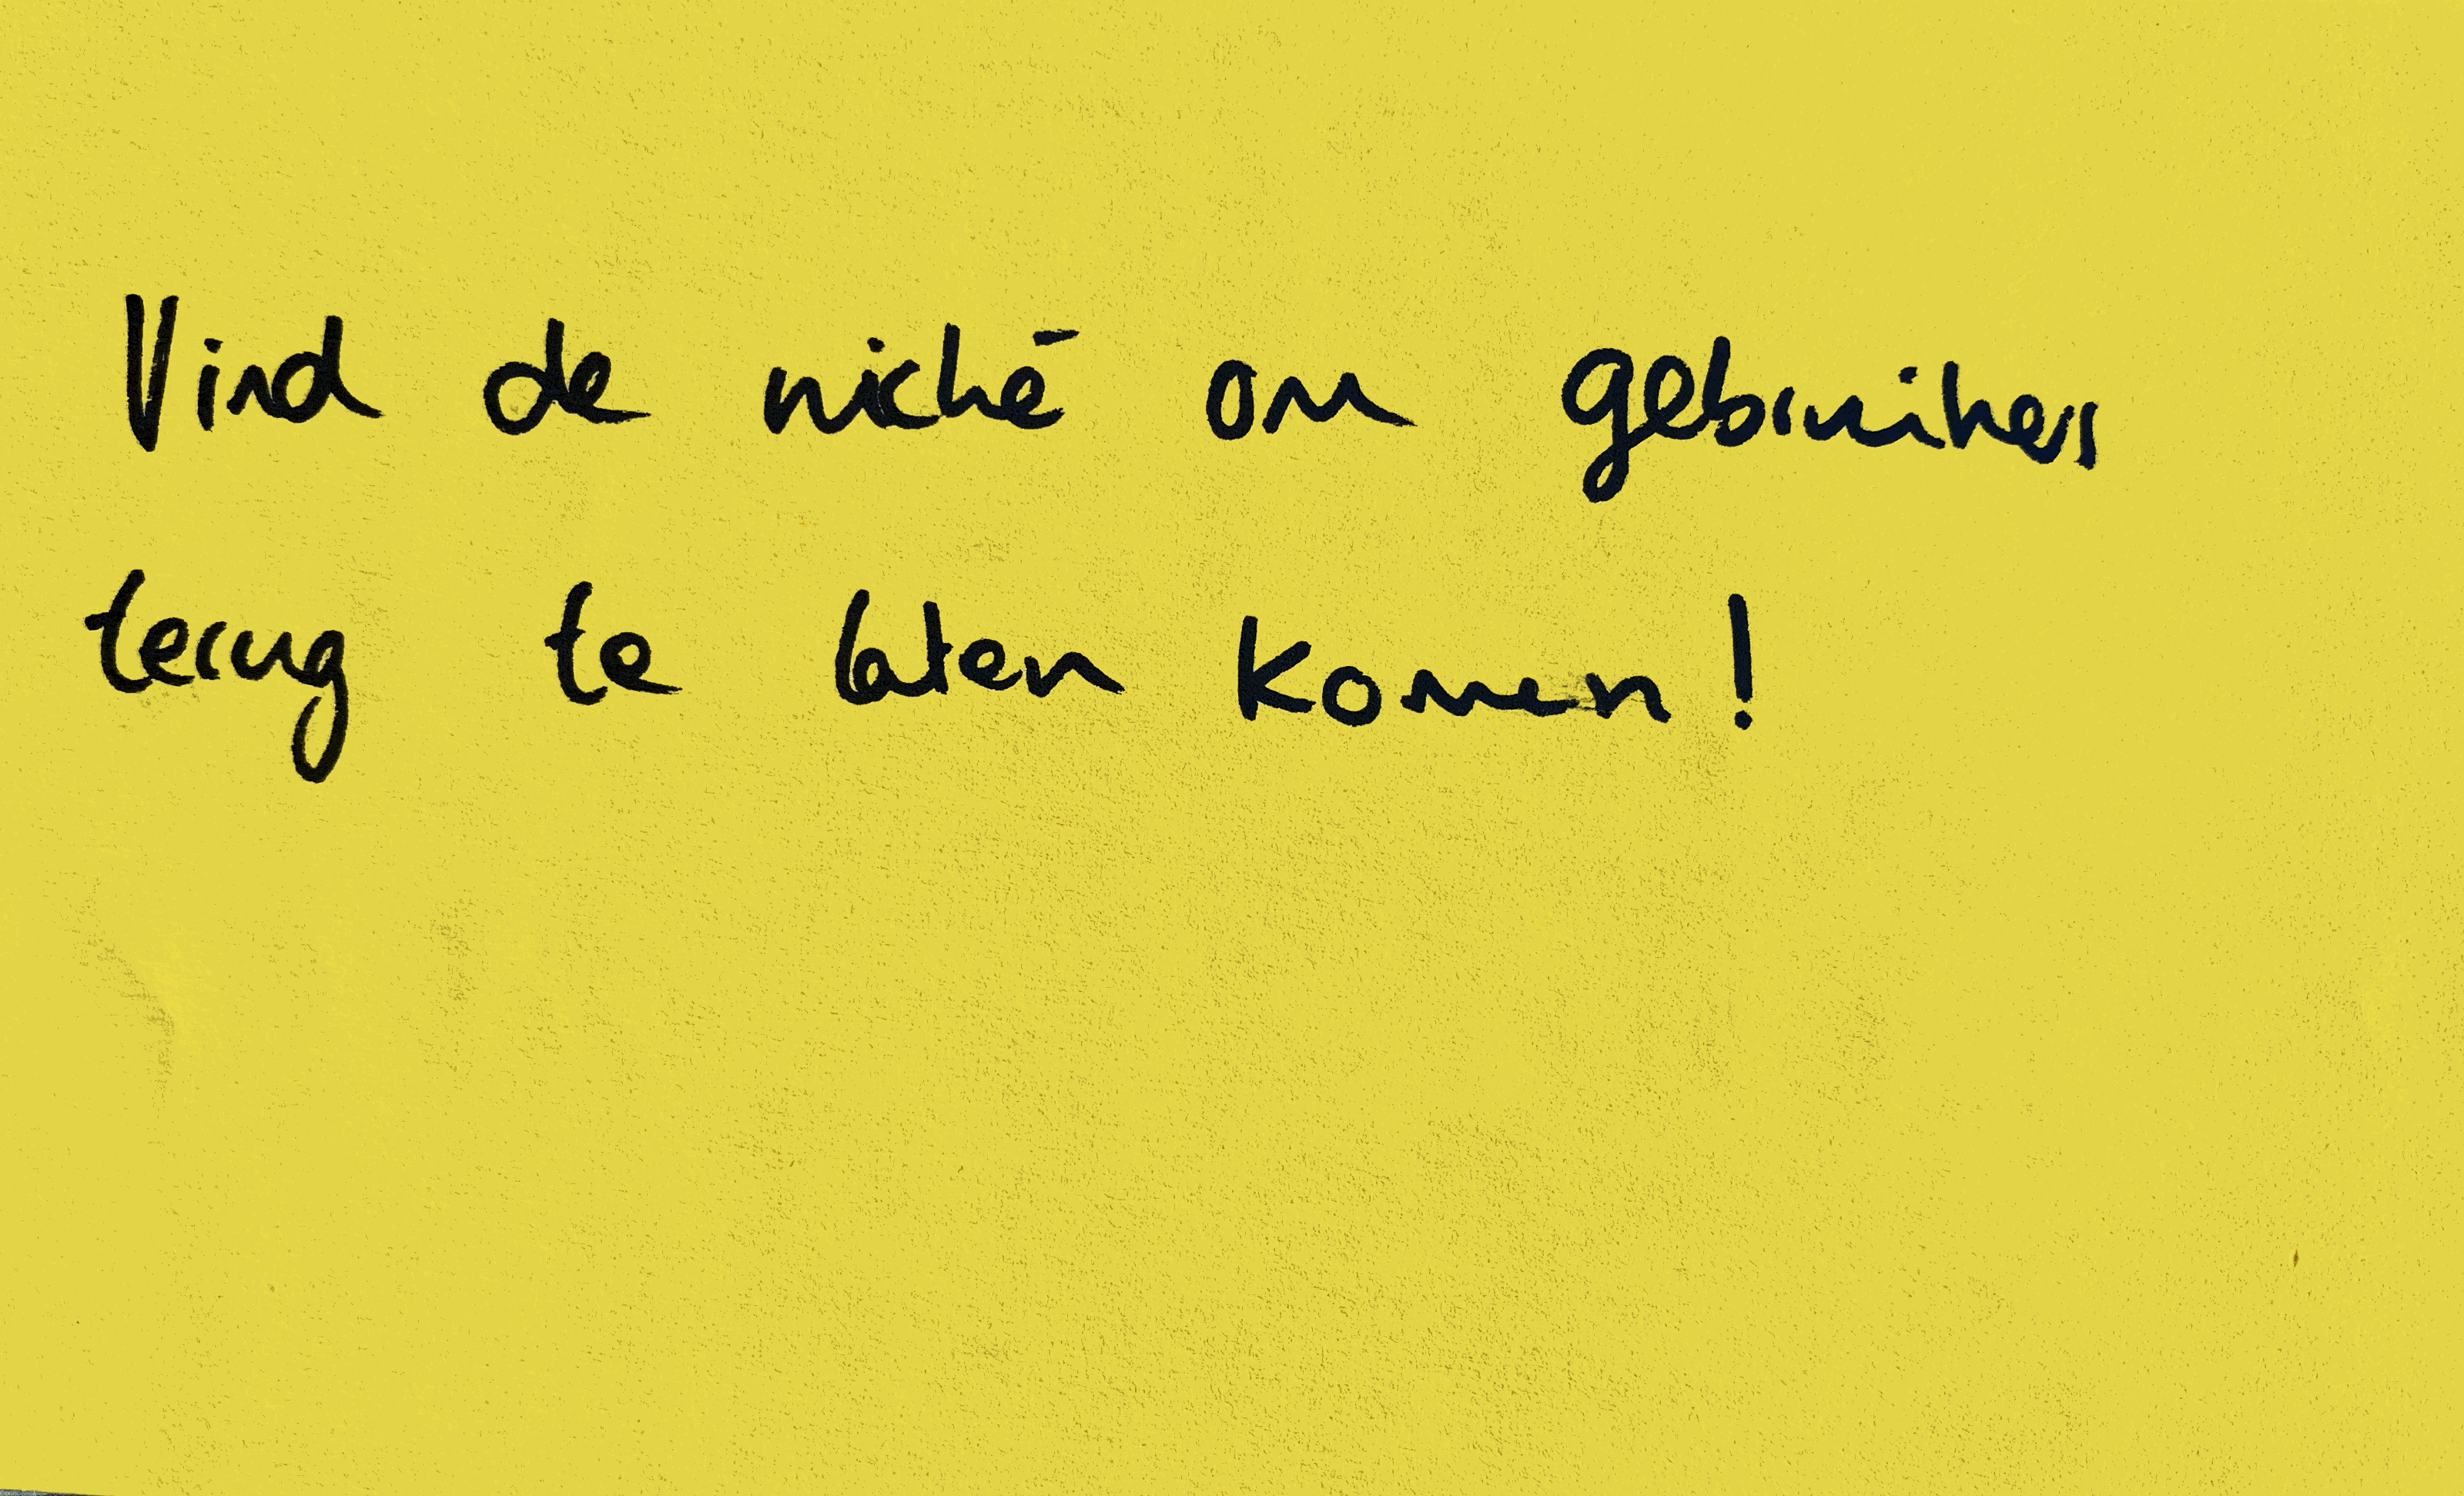 Vind de niché om gebruikers
terug te laten komen!